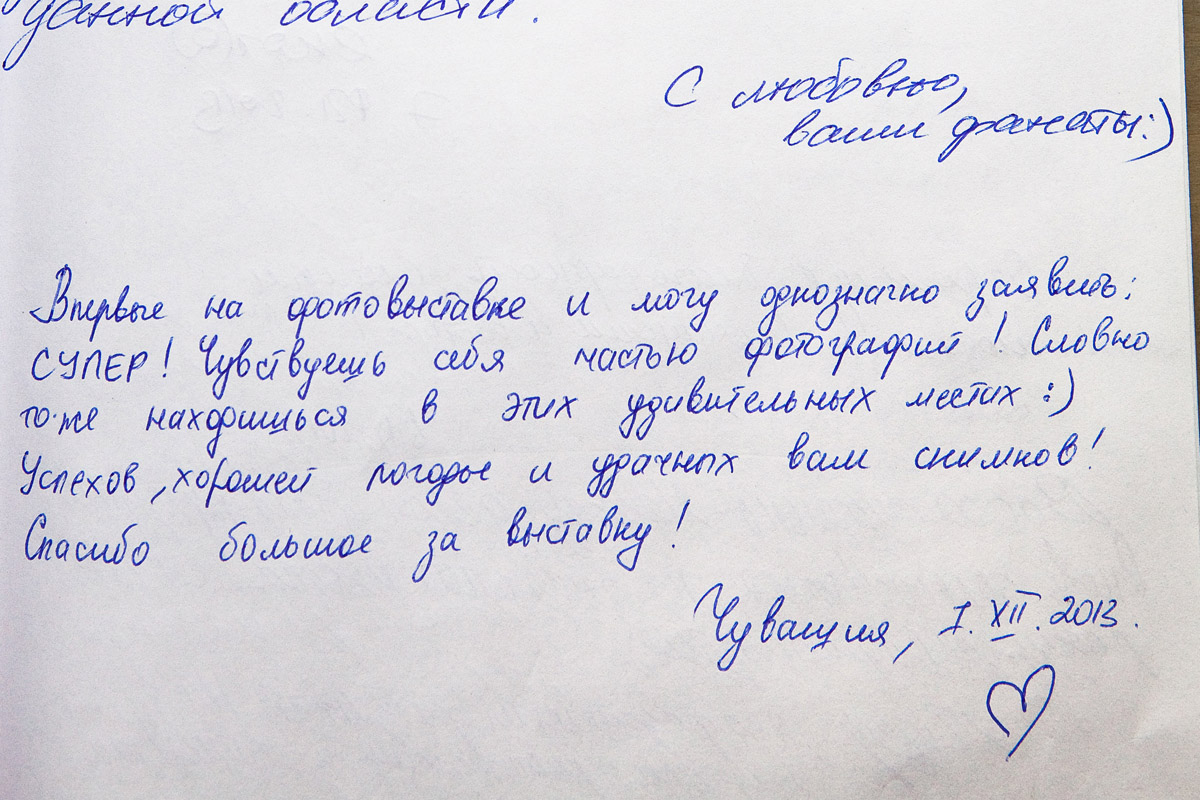 данной области.
С любовью,
ваши фанаты:)
Впервые на фотовыставке и могу однозначно заявить:
СУПЕР! Чувствуешь себя частью фотографий! Словно
тоже находишься в этих удивительных местах :)
Успехов, хорошей погоды и удачных вам снимков!
Спасибо большое за выставку!
Чувашия, 1.XII.2013.